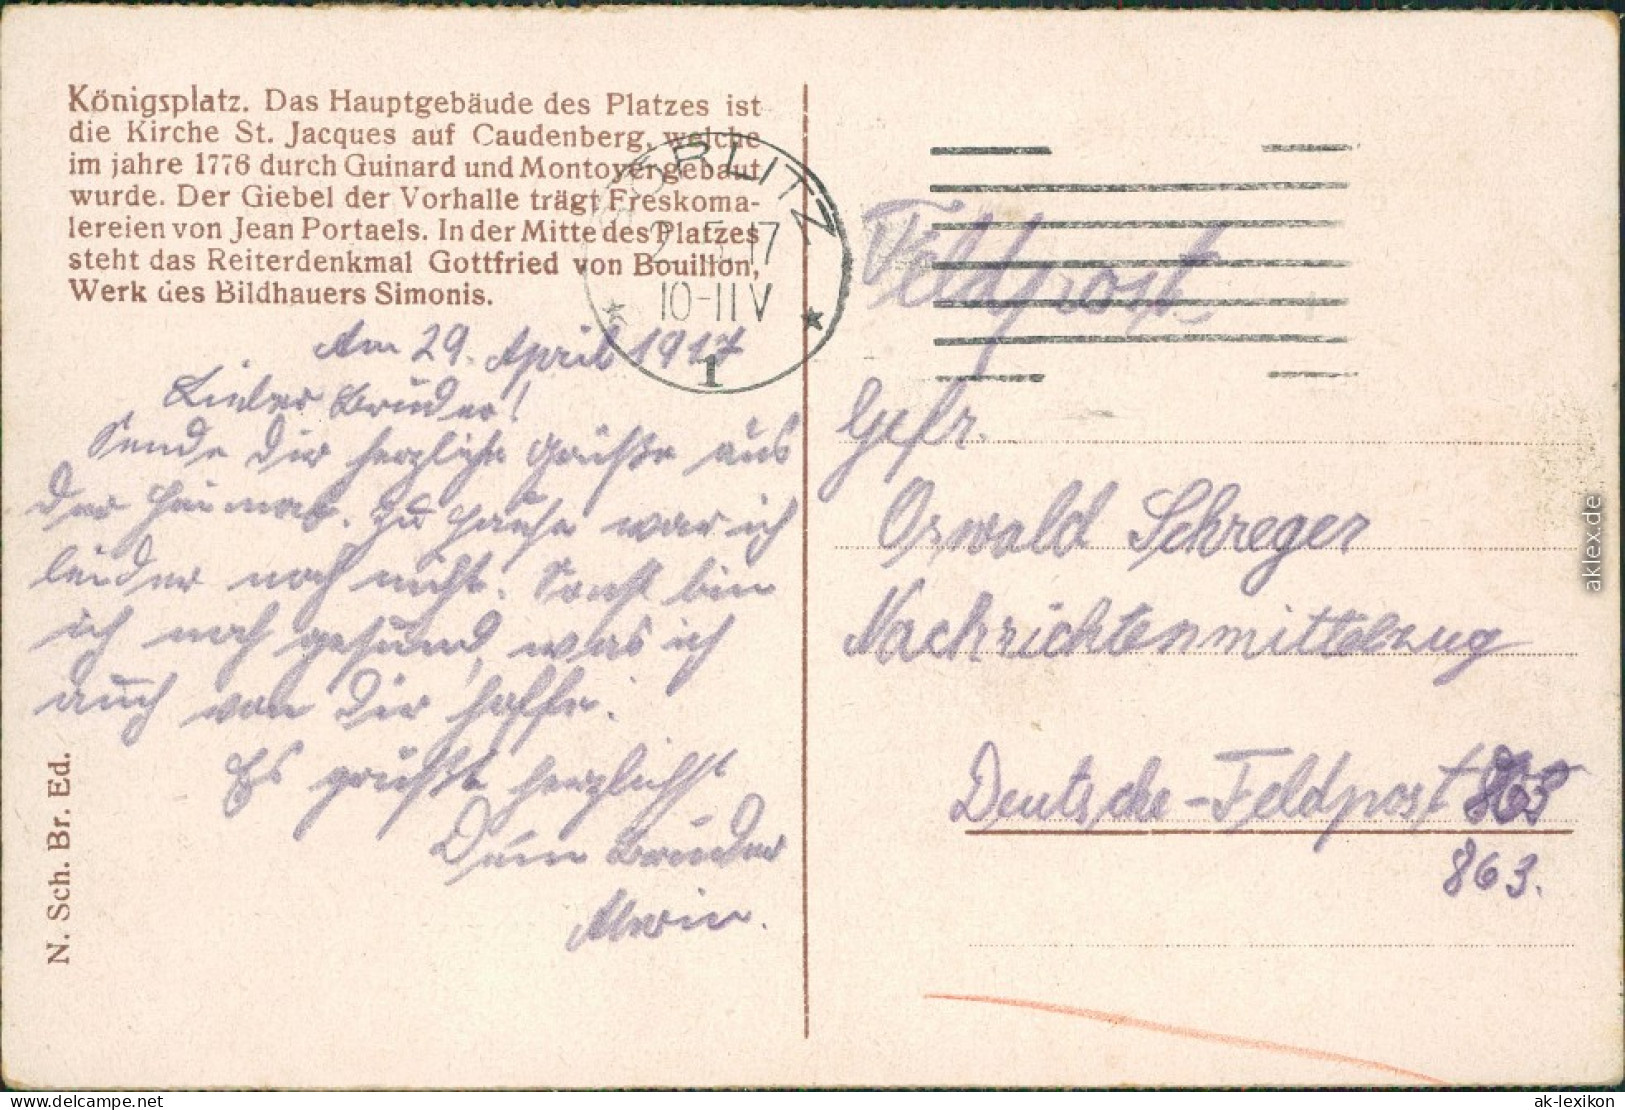 Königsplatz. Das Hauptgebäude des Platzes ist
die Kirche St. Jacques auf Caudenberg, welche
im jahre 1776 durch Guinard und Montoyer gebaut
wurde. Der Giebel der Vorhalle trägt Freskoma-
lereien von Jean Portaels. In der Mitte des Platzes
steht das Reiterdenkmal Gottfried von Bouillon,
Werk des Bildhauers Simonis.
Am 29. April 1917
Lieber Bruder!
Sende Dir herzliche Grüße aus
der Heimat. Zu Hause war ich
leider noch nicht. Sonst bin
ich noch gesund, was ich
auch von Dir hoffe.
Es grüßt herzlichst
Dein Bruder
Alwin.
N. Sch. Br. Ed.
GÖRLITZ
2.5.17
10-11V
1
Feldpost
Gefr.
Oswald Schreger
Nachrichtenmittelzug
Deutsche-Feldpost
863.
aklex.de
delcampe.net
ak-lexikon